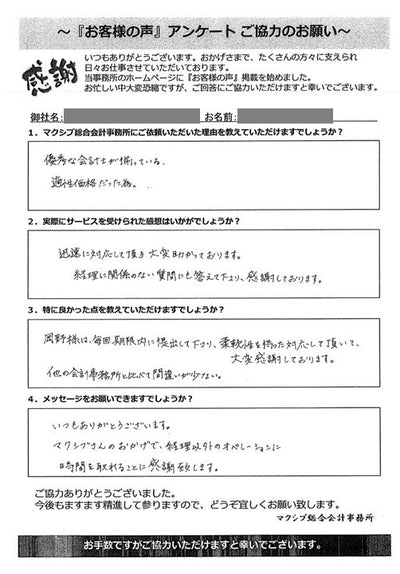 ～『お客様の声』アンケート ご協力のお願い～
感謝
いつもありがとうございます。おかげさまで、たくさんの方々に支えられ
日々お仕事させていただいております。
当事務所のホームページに『お客様の声』掲載を始めました。
お忙しい中大変恐縮ですが、ご回答にご協力いただけますと幸いでございます。
御社名: お名前:
1．マクシブ総合会計事務所にご依頼いただいた理由を教えていただけますでしょうか？
優秀な会計士が揃っている。
適性価格だった為。
2．実際にサービスを受けられた感想はいかがでしょうか？
迅速に対応して頂き大変助かっております。
経理に関係のない質問にも答えて下さり、感謝しております。
3．特に良かった点を教えていただけますでしょうか？
岡野様は、毎回期限内に提出して下さり、柔軟性を持った対応して頂いて、
大変感謝しております。
他の会計事務所と比べて間違いが少ない。
4．メッセージをお願いできますでしょうか？
いつもありがとうございます。
マクシブさんのおかげで、経理以外のオペレーションに
時間を取れることに感謝致します。
ご協力ありがとうございました。
今後もますます精進して参りますので、どうぞ宜しくお願い致します。
マクシブ総合会計事務所
お手数ですがご協力いただけますと幸いでございます。